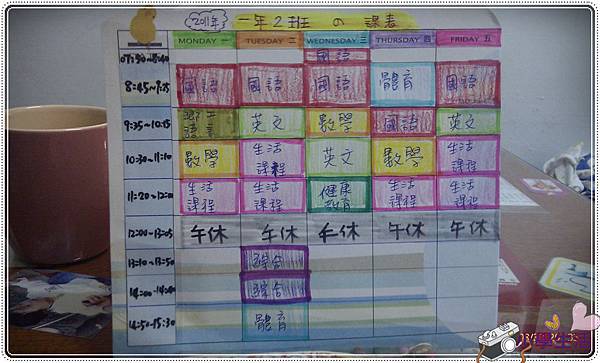 2011年 一年2班 の 課表
MONDAY 一 TUESDAY 二 WEDNESDAY 三 THURSDAY 四 FRIDAY 五
07:50~8:40 國語
8:45~9:25 國語 國語 國語 體育 國語
9:35~10:15 鄉土語言 英文 數學 國語 英文
10:30~11:10 數學 生活課程 英文 數學 生活課程
11:20~12:00 生活課程 生活課程 健康教育 生活課程 生活課程
12:00~13:05 午休 午休 午休 午休 午休
13:10~13:50 綜合
14:00~14:40 綜合
14:50~15:30 體育
學生活